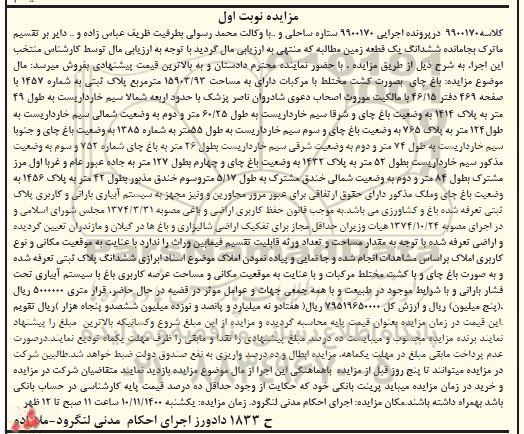 مزایده نوبت اول
کلاسه۹۹۰۰۱۷۰ درپرونده اجرایی ۹۹۰۰۱۷۰ ستاره ساحلی و ..با وکالت محمد رسولی بطرفیت ظریف عباس زاده و .. دایر بر تقسیم
ماترک بجامانده ششدانگ یک قطعه زمین مطالبه که منتهی به ارزیابی مال گردید با توجه به ارزیابی مال توسط کارشناس منتخب
این اجرا، به شرح ذیل از طریق مزایده ، با حضور نماینده محترم دادستان و به بالاترین قیمت پیشنهادی بفروش میرسد: مال
موضوع مزایده: باغ چای بصورت کشت مختلط با مرکبات دارای به مساحت ۱۵۹۰۳/۹۳ مترمربع پلاک ثبتی به شماره ۱۴۵۷ با
صفحه ۴۶۹ دفتر ۴۶/۱۵ با مالکیت موروث اصحاب دعوی شادروان ناصر پزشک با حدود اربعه شمالا سیم خارداریست به طول ۴۹
متر به پلاک ۱۴۱۴ به وضعیت باغ چای و شرقا سیم خارداریست به طول ۶۰/۲۵ متر و دوم به وضعیت شمالی سیم خارداریست به
طول۱۲۴ متر به پلاک ۷۶۵ به وضعیت باغ چای و سوم سیم خارداریست به طول ۵۵متر به شماره ۱۳۸۵ به وضعیت باغ چای و جنوبا
سیم خارداریست به طول ۷۴ متر و دوم به وضعیت شرقی سیم خارداریست بطول ۲۶ متر به باغ چای شماره ۷۵۲ و سوم به وضعیت
مذکور سیم خارداریست بطول ۵۲ متر به پلاک ۱۴۳۲ به وضعیت باغ چای و چهارم بطول ۱۲۷ متر به جاده عبور عام و غربا اول مرز
مشترک بطول ۸۴ متر و دوم به وضعیت شمالی خندق مشترک به طول ۵/۱۷ متروسوم خندق مذبور بطول ۴۲ متر به پلاک ۱۴۵۶ به
وضعیت باغ چای وملک مذکور دارای حقوق ارتفاقی برای عبور مرور مجاورین و ونیز مجهز به سیستم آبیاری بارانی و کاربری پلاک
ثبتی تعرفه شده باغ و کشاورزی می باشد.به موجب قانون حفظ کاربری اراضی و باغی مصوبه ۱۳۷۴/۳/۳۱ مجلس شورای اسلامی و
در اجرای مصوبه ۱۳۷۴/۱۰/۲۴ هیات وزیران حداقل مجاز برای تفکیک اراضی شالیزاری و باغ ها در گیلان و مازندران تعیین گردیده
و اراضی تعرفه شده با توجه به مقدار مساحت و تعداد ورثه قابلیت تقسیم فیمابین وراث را ندارد با عنایت به موقعیت مکانی و نوع
کاربری املاک براساس مشاهدات انجام شده و جا نمایی و پیاده نمودن املاک موضوع اسناد ابرازی ششدانگ پلاک ثبتی تعرفه شده
و به صورت باغ چای و با کشت مختلط مرکبات و با عنایت به موقعیت مکانی و مساحت عرصه کاربری باغ با سیستم آبیاری تحت
فشار بارانی و با شرایط موجود در طبیعت و با همه جمعی جهات و عوامل موثر در قضیه در حال حاضر، قرار متری ۵۰۰۰۰۰۰ ریال
.(پنج میلیون) ریال و ارزش کل ۷۹۵۱۹۶۵۰۰۰۰ ریال( هفتادو نه میلیارد و پانصد و نوزده میلیون ششصدو پنجاه هزار )ریال تقویم
.این قیمت در زمان مزایده بعنوان قیمت پایه محاسبه گردیده و مزایده از این مبلغ شروع وکسانیکه بالاترین مبلغ را پیشنهاد
نمایند برنده مزایده محسوب و میبایست ده درصد مبلغ پیشنهادی را نقدا و مابقی را ظرف مهلت یکماه تودیع نمایند.درصورت
عدم پرداخت مابقی مبلغ در مهلت یکماهه، مزایده ابطال و ده درصد واریزی به نفع صندوق دولت ضبط خواهد شد.طالبین شرکت
در مزایده میتوانند تا پنج روز قبل از مزایده باهماهنگی این اجرا از مال موضوع مزایده بازدید نمایند متقاضیان شرکت در مزایده
و خرید در زمان مزایده میباید پرینت بانکی خود که حکایت از وجود حداقل ده درصد قیمت پایه کارشناسی در حساب بانکی
باشد بهمراه داشته باشند.مکان مزایده: اجرای احکام مدنی لنگرود. زمان مزایده: یکشنبه ۱۰/۱۱/۱۴۰۰ ساعت ۱۱ صبح تا ۱۲ ظهر
ح ۱۸۳۳ دادورز اجرای احکام مدنی لنگرود-